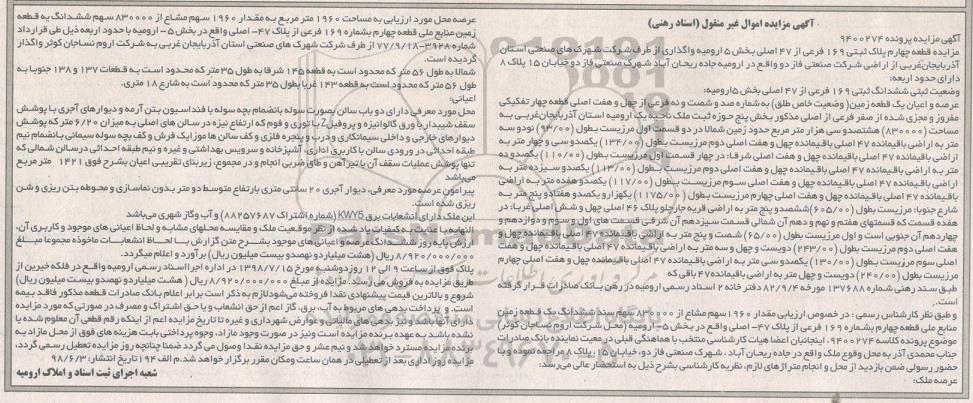 آگهی مزایده اموال غیر منقول (اسناد رهنی)
آگهی مزایده پرونده ۹۴۰۰۲۷۴
مزایده قطعه چهارم پلاک ثبتی ۱۶۹ فرعی از ۴۷ اصلی بخش ۵ ارومیه واگذاری از طرف شرکت شهرک های صنعتی استان
آذربایجان‌غربی از اراضی شرکت صنعتی فاز دو واقع در ارومیه جاده ریحان آباد شهرک صنعتی فاز دو خیابان ۱۵ پلاک ۸
دارای حدود اربعه:
وضعیت ثبتی ششدانگ ثبتی ۱۶۹ فرعی از ۴۷ اصلی بخش ۵ارومیه:
عرصه و اعیان یک قطعه زمین( وضعیت خاص طلق) به شماره صد و شصت و نه فرعی از چهل و هفت اصلی قطعه چهار تفکیکی
مفروز و مجزی شده از صفر فرعی از اصلی مذکور بخش پنج حوزه ثبت ملک ناحیه یک ارومیه استان آذربایجان‌غربی به
مساحت (۸۳۰۰۰۰) هشتصدو سی هزار متر مربع حدود زمین شمالا در دو قسمت اول مرزیست بطول (۹۳/۰۰) نودو سه
متر به اراضی باقیمانده ۴۷ اصلی باقیمانده چهل و هفت اصلی دوم مرزیست بطول (۱۳۴/۰۰) یکصدو سی و چهار متر به
اراضی باقیمانده ۴۷ اصلی باقیمانده چهل و هفت اصلی شرقا: در چهار قسمت اول مرزیست بطول (۱۱۰/۰۰) یکصدو ده
متر به اراضی باقیمانده ۴۷ اصلی باقیمانده چهل و هفت اصلی دوم مرزیست بطول (۱۱۳/۰۰) یکصدو سیزده متر به
اراضی باقیمانده ۴۷ اصلی باقیمانده چهل و هفت اصلی سوم مرزیست بطول (۱۱۷/۰۰) یکصدو هفده متر به اراضی
باقیمانده ۴۷ اصلی باقیمانده چهل و هفت اصلی چهارم مرزیست بطول (۱۱۷۵/۰۰) یکهزار و یکصدو هفتادو پنج متر به
شارع جنوبا: مرزیست بطول (۶۰۵/۰۰) ششصدو پنج متر به اراضی قریه جارچلو پلاک ۴۶ اصلی چهل و شش اصلی غربا: در
هفده قسمت که قسمتهای هفتم و نهم و دهم آن شمالی قسمت سیزدهم آن شرقی قسمت های اول و سوم و دوازدهم و
چهاردهم آن جنوبی است و اول مرزیست بطول (۶۵/۰۰) شصت و پنج متر به اراضی باقیمانده ۴۷ اصلی باقیمانده چهل و
هفت اصلی دوم مرزیست بطول (۲۴۳/۰۰) دویست و چهل و سه متر به اراضی باقیمانده ۴۷ اصلی باقیمانده چهل و هفت
اصلی سوم مرزیست بطول (۱۳۰/۰۰) یکصدو سی متر به اراضی باقیمانده ۴۷ اصلی باقیمانده چهل و هفت اصلی چهارم
مرزیست بطول (۲۴۰/۰۰) دویست و چهل متر به اراضی باقیمانده ۴۷ باقی که
طبق سند رهنی شماره ۱۳۷۶۸۸ مورخه ۸۲/۹/۴ دفترخانه ۲ اسناد رسمی ارومیه در رهن بانک صادرات قرار گرفته
است.
و طبق نظر کارشناس رسمی : در خصوص ارزیابی مقدار ۱۹۶۰ سهم مشاع از ۸۳۰۰۰۰ سهم سند ششدانگ یک قطعه زمین
منابع ملی قطعه چهارم بشماره ۱۶۹ فرعی از پلاک ۴۷- اصلی واقع در بخش ۵- ارومیه (محل شرکت اروم نساجان کوثر)
موضوع پرونده کلاسه ۹۴۰۰۲۷۴ ، اینجانبان اعضا هیات کارشناسی منتخب با هماهنگی قبلی در معیت نماینده بانک صادرات
جناب محمدی آذر به محل وقوع ملک واقع در جاده ریحان آباد ، شهرک صنعتی فاز دو، خیابان ۱۵، پلاک ۸ مراجعه نموده و با
حضور رسولی ضمن بازدید از محل و انجام متراژهای لازم، نظریه کارشناسی بشرح ذیل به استحضار عالی می‌رسد:
عرصه ملک:
عرصه محل مورد ارزیابی به مساحت ۱۹۶۰ متر مربع به مقدار ۱۹۶۰ سهم مشاع از ۸۳۰۰۰۰ سهم ششدانگ یه قطعه
زمین منابع ملی قطعه چهارم بشماره ۱۶۹ فرعی از پلاک ۴۷- اصلی واقع در بخش ۵ - ارومیه با حدود اربعه ذیل طی قرارداد
شماره ۳۹۲۸-۷۷/۹/۱۸ از طرف شرکت شهرک های صنعتی استان آذربایجان غربی به شرکت اروم نساجان کوثر واگذار
گردیده است.
شمالا به طول ۵۶ متر که محدود است به قطعه ۱۴۵ شرقا به طول ۳۵ متر که محدود است به قطعات ۱۳۷ و ۱۳۸ جنوبا به
طول ۵۶ متر که محدود است به قطعه ۱۴۳ غربا بطول ۳۵ متر که محدود است به شارع ۱۸ متری.
اعیانی:
محل مورد معرفی دارای دو باب سالن بصورت سوله بانضمام بچه سوله با فنداسیون بتن آرمه و دیوارهای آجری با پوشش
سقف شیبدار با ورق گالوانیزه و پروفیل Z با توری و فوم که ارتفاع نیزه در سالن های اصلی به میزان ۶/۲۰ متر که پوشش
دیوارهای خارجی و داخلی سیمانکاری و درب و پنجره فلزی و کف سالن ها موزاییک فرش و کف بچه سوله سیمانی بانضمام نیم
طبقه احداثی در ورودی سالن با کاربری اداری، آشپزخانه و سرویس بهداشتی و غیره و نیم طبقه احداثی در سالن شمالی که
تنها پوشش عملیات سقف آن با تیر آهن و طاق ضربی انجام و در مجموع، زیربنای تقریبی اعیان بشرح فوق ۱۴۲۱ متر مربع
می‌باشد
پیرامون عرصه مورد معرفی، دیوار آجری ۲۰ سانتی متری بارتفاع متوسط دو متر بدون نماسازی و محوطه بتن ریزی و شن
ریزی شده است.
این ملک دارای انشعابات برق KW75 (شماره اشتراک ۸۸۲۵۷۶۸۷) و آب و گاز شهری می‌باشد
النهایه با عنایت به کیفیات یاد شده از نظر موقعیت ملک و مقایسه محلهای مشابه و لحاظ اعیانی های موجود و کاربری آن،
ارزش پایه روز ششدانگ عرصه و اعیانی های موجود بشرح متن گزارش با لحاظ انشعابات ماخوذه مجموعا مبلغ
۸/۹۲۰/۰۰۰/۰۰۰ ریال (هشت میلیارد و نهصدو بیست میلیون ریال) برآورد و اعلام میگردد.
پلاک فوق از ساعت ۹ الی ۱۲ روز دوشنبه مورخ ۱۳۹۸/۷/۱۵ در اداره اجرا اسناد رسمی ارومیه واقع در فلکه خیرین از
طریق مزایده به فروش می رسد. مزایده از مبلغ ۸/۹۲۰/۰۰۰/۰۰۰ ریال ( هشت میلیارد و نهصدو بیست میلیون ریال)
شروع و بالاترین قیمت پیشنهادی نقدا فروخته می‌شود لازم به ذکر است برابر اعلام بانک صادرات قطعه مذکور فاقد بیمه
است. و پرداخت بدهی های مربوط به آب، برق، گاز اعم از حق انشعاب و یا حق اشتراک و مصرف در صورتی که مورد مزایده
دارای آنها باشد و نیز بدهی های مالیاتی و عوارض شهرداری و غیره تا تاریخ مزایده اعم از اینکه رقم قطعی آن معلوم شده یا
نشده باشد به عهده برنده مزایده است و نیز در صورت وجود مازاد، وجوه پرداختی بابت هزینه های فوق از محل مازاد به
برنده مزایده مسترد خواهد شد و نیم عشر و حق مزایده نقدا وصول می گردد ضمنا چنانچه روز مزایده تعطیل رسمی گردد،
مزایده روز اداری بعد از تعطیلی در همان ساعت و مکان مقرر برگزار خواهد شد.م الف ۱۹۴ تاریخ انتشار: ۹۸/۶/۳
شعبه اجرای ثبت اسناد و املاک ارومیه